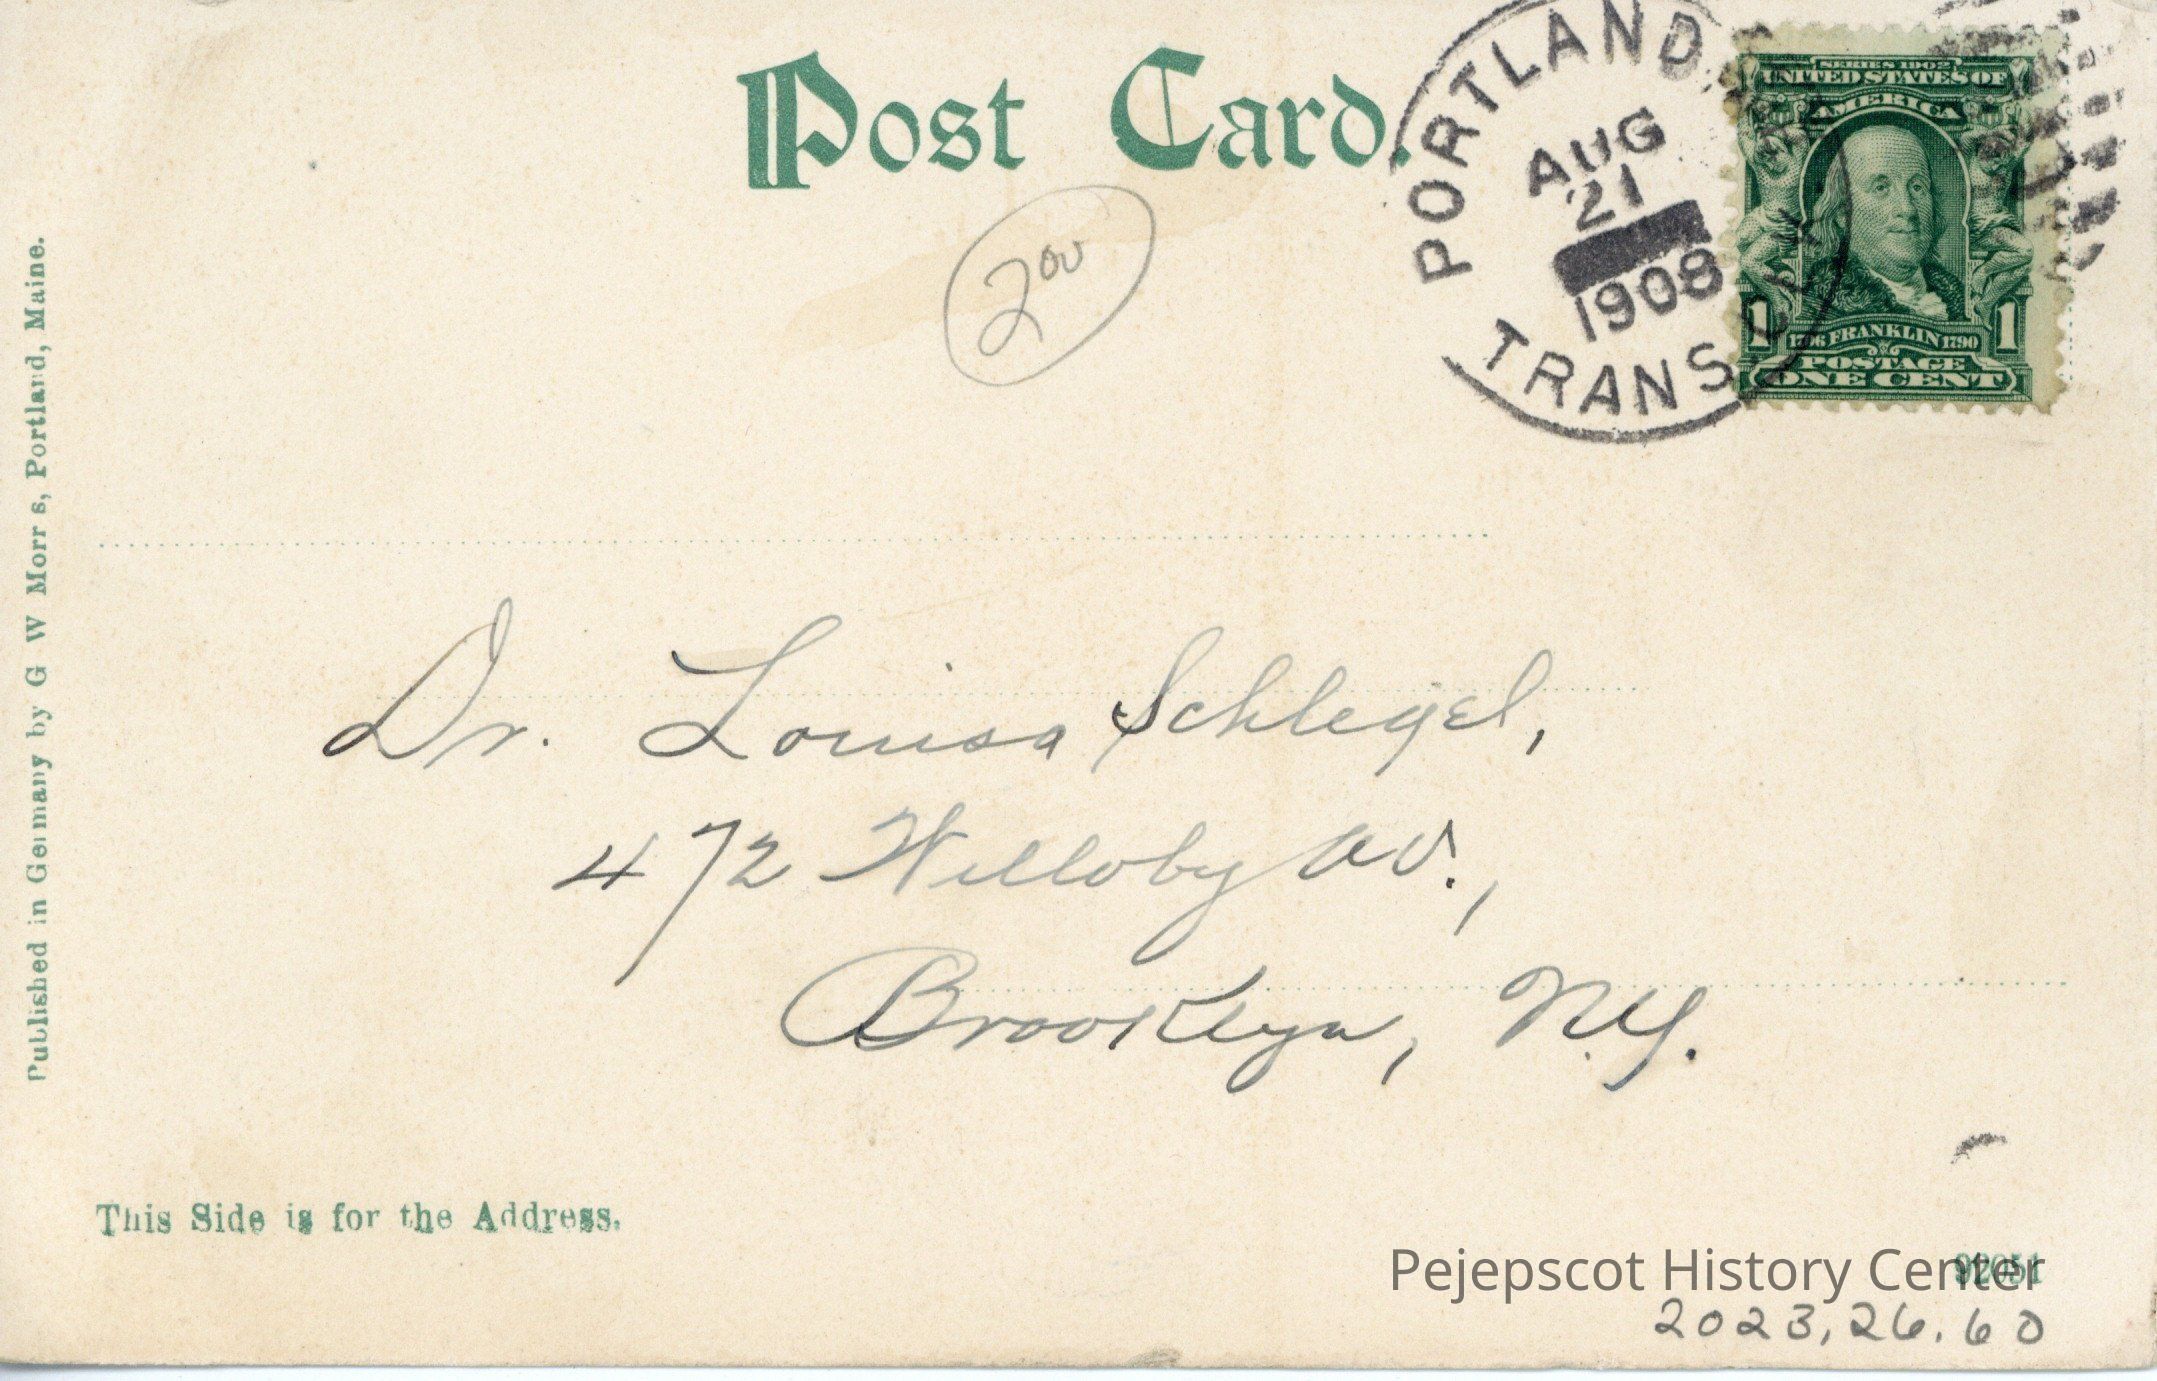 Post Card.
PORTLAND,
AUG
21
1908
TRANS
SERIES 1902
UNITED STATES OF
AMERICA
1 1
1706 FRANKLIN 1790
POSTAGE
ONE CENT
2 00
Published in Germany by G W Morr s, Portland, Maine.
Dr. Louisa Schlegel,
472 Willoby Av.,
Brooklyn, N.Y.
This Side is for the Address.
92051
Pejepscot History Center
2023.26.60